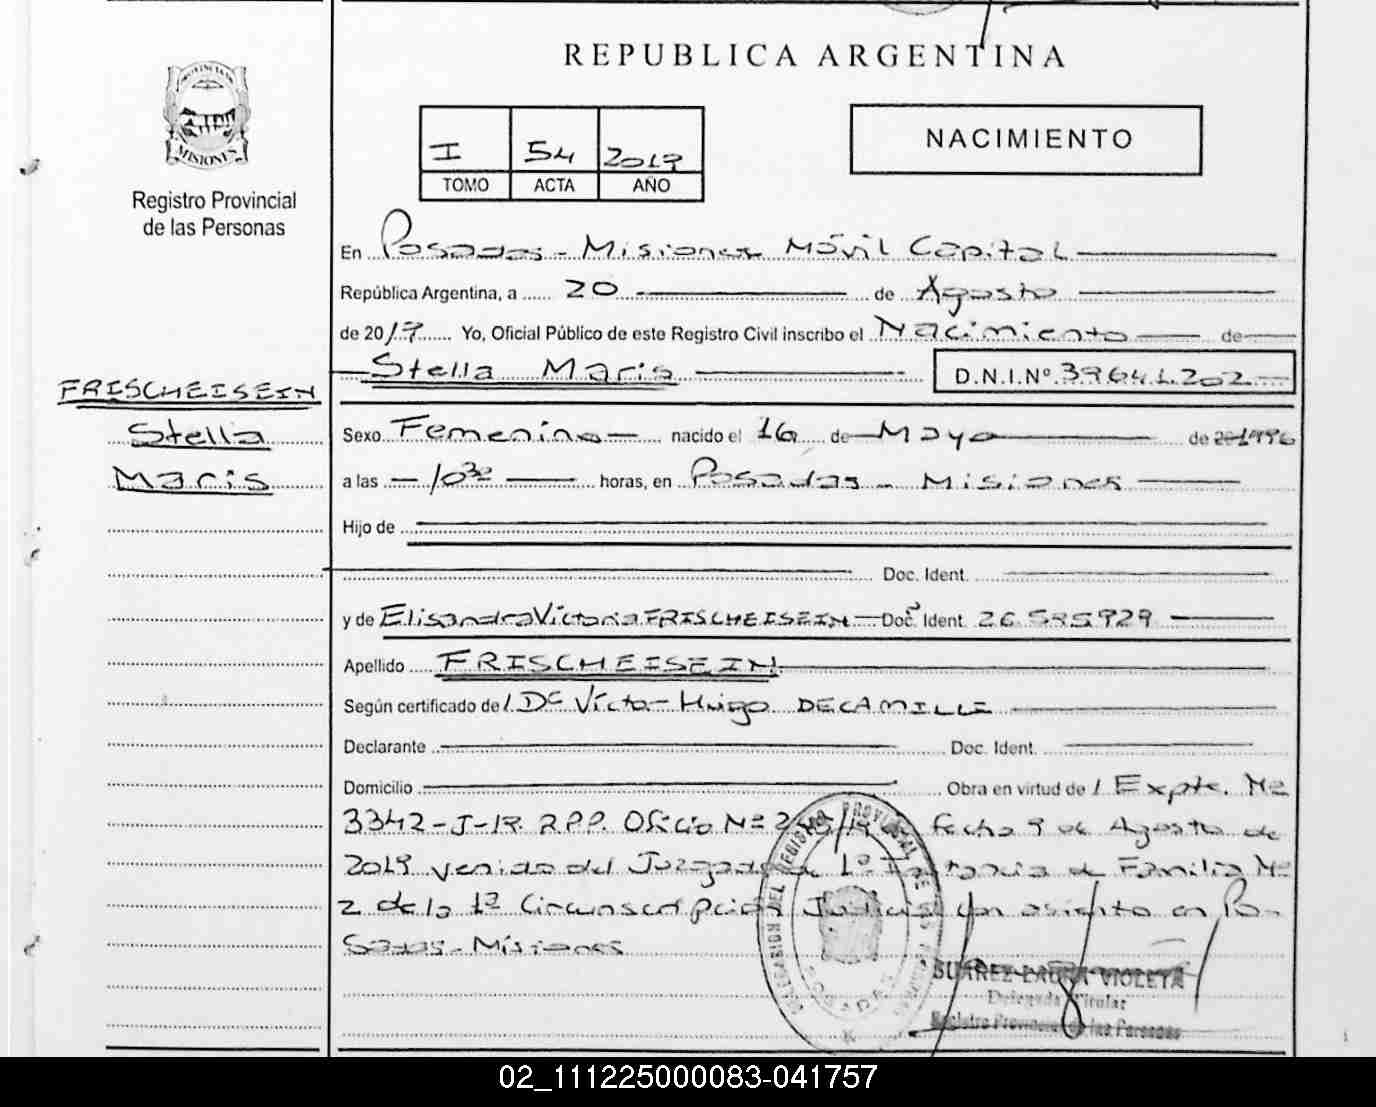 REPUBLICA ARGENTINA
PROVINCIA DE
MISIONES
Registro Provincial
de las Personas
I 54 2019
TOMO ACTA AÑO
NACIMIENTO
En Posadas - Misiones Móvil Capital
República Argentina, a 20 de Agosto
de 2019 Yo, Oficial Público de este Registro Civil inscribo el Nacimiento de
Stella Maris D.N.I.Nº 39.641.202
FRISCHEISEIN
Stella
Maris
Sexo Femenino nacido el 16 de Mayo de 1996
a las 10³⁰ horas, en Posadas - Misiones
Hijo de
Doc. Ident.
y de Elisandra Victoria FRISCHEISEIN Doc. Ident. 26.585.929
Apellido FRISCHEISEIN
Según certificado de Victor Hugo DECAMILLI
Declarante Doc. Ident.
Domicilio Obra en virtud de Expte. Nº
3342-J-19. R.P.P. Oficio Nº fecha 9 de Agosto de
2019 venido del Juzgado de 1º Instancia de Familia Nº
2 de la 1ª Circunscripción Judicial con asiento en Po-
sadas - Misiones
SUAREZ LAURA VIOLETA
Delegada Titular
Registro Provincial de las Personas
02_111225000083-041757